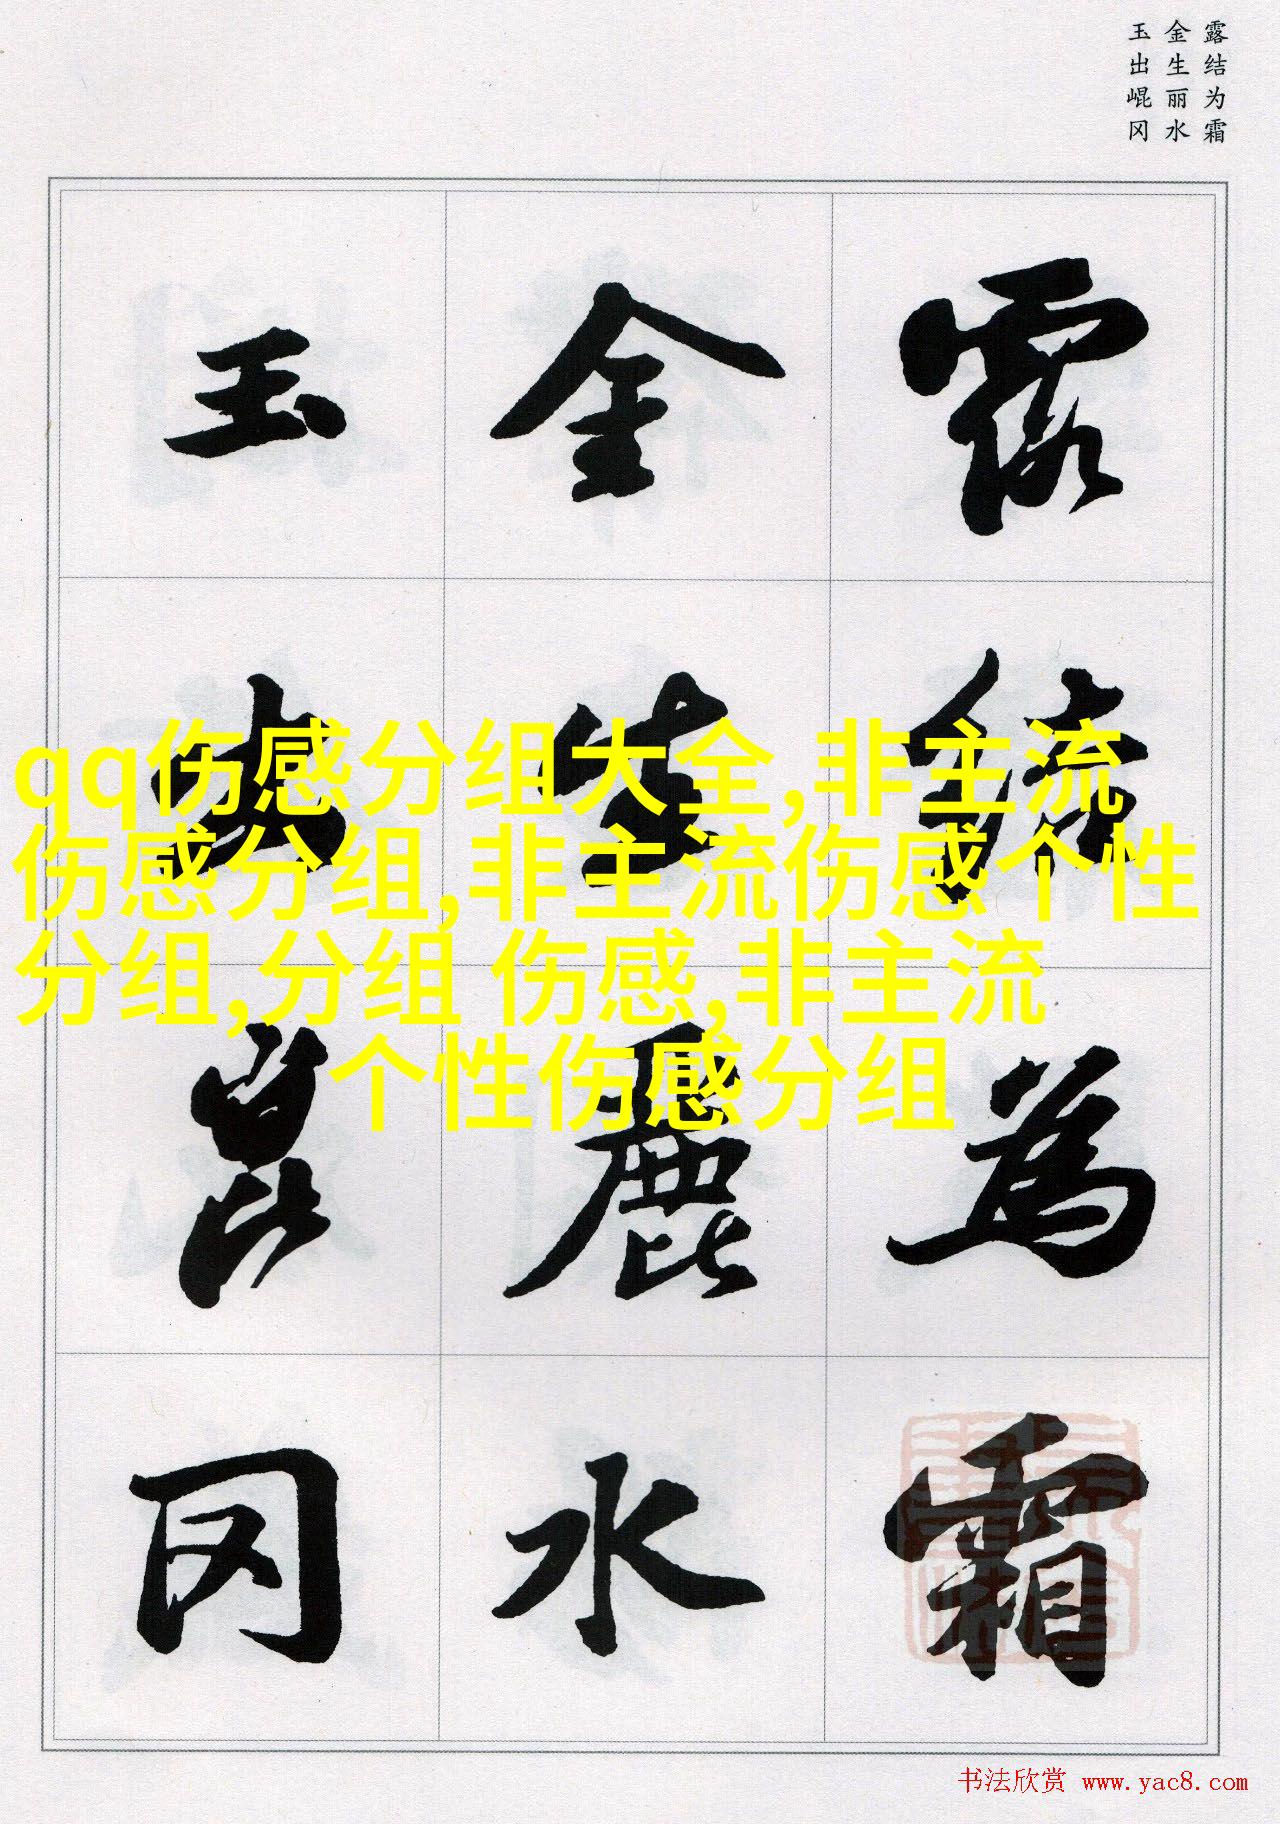 露结为霜
金生丽水
玉出崐冈
露结為霜
金生麗水
玉出崑冈
qq伤感分组大全,非主流
伤感分组,非主流伤感个性
分组,分组 伤感,非主流
个性伤感分组
书法欣赏 www.yac8.com